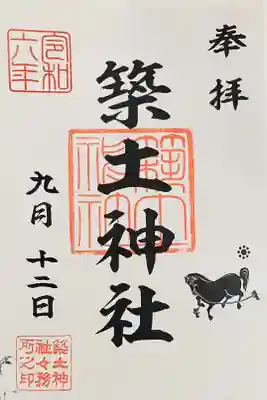 奉拝
築土神社
令和
六年
九月十二日
築土神
社々務
所之印